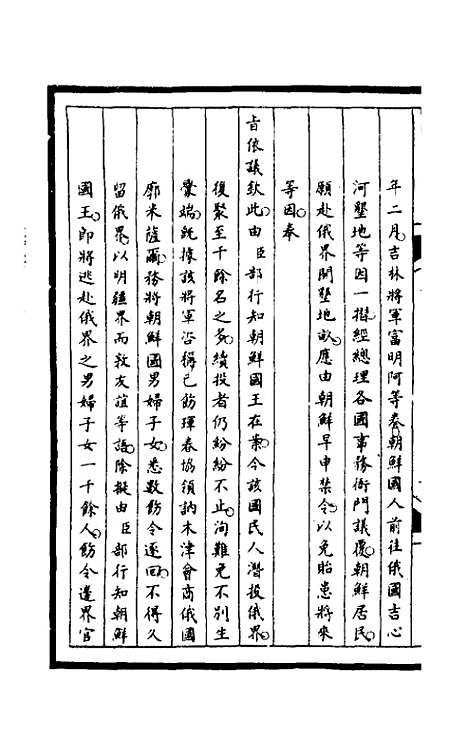 年二月吉林將軍富明阿等奏朝鮮國人前往俄國吉心
河墾地等因一摺經總理各國事務衙門議覆朝鮮居民
願赴俄界開墾地畝應由朝鮮早申禁令以免貽患將來
等因奉
旨依議欽此由臣部行知朝鮮國王在案今該國民人潛投俄界
復聚至千餘名之多續投者仍紛紛不止洵難免不別生
釁端既據該將軍咨稱已飭琿春協領訥木津會商俄國
廓米薩爾務將朝鮮國男婦子女悉數飭令逐回不得久
留俄界以明疆界而敦友誼等語除擬由臣部行知朝鮮
國王即將逃赴俄界之男婦子女一千餘人飭令邊界官